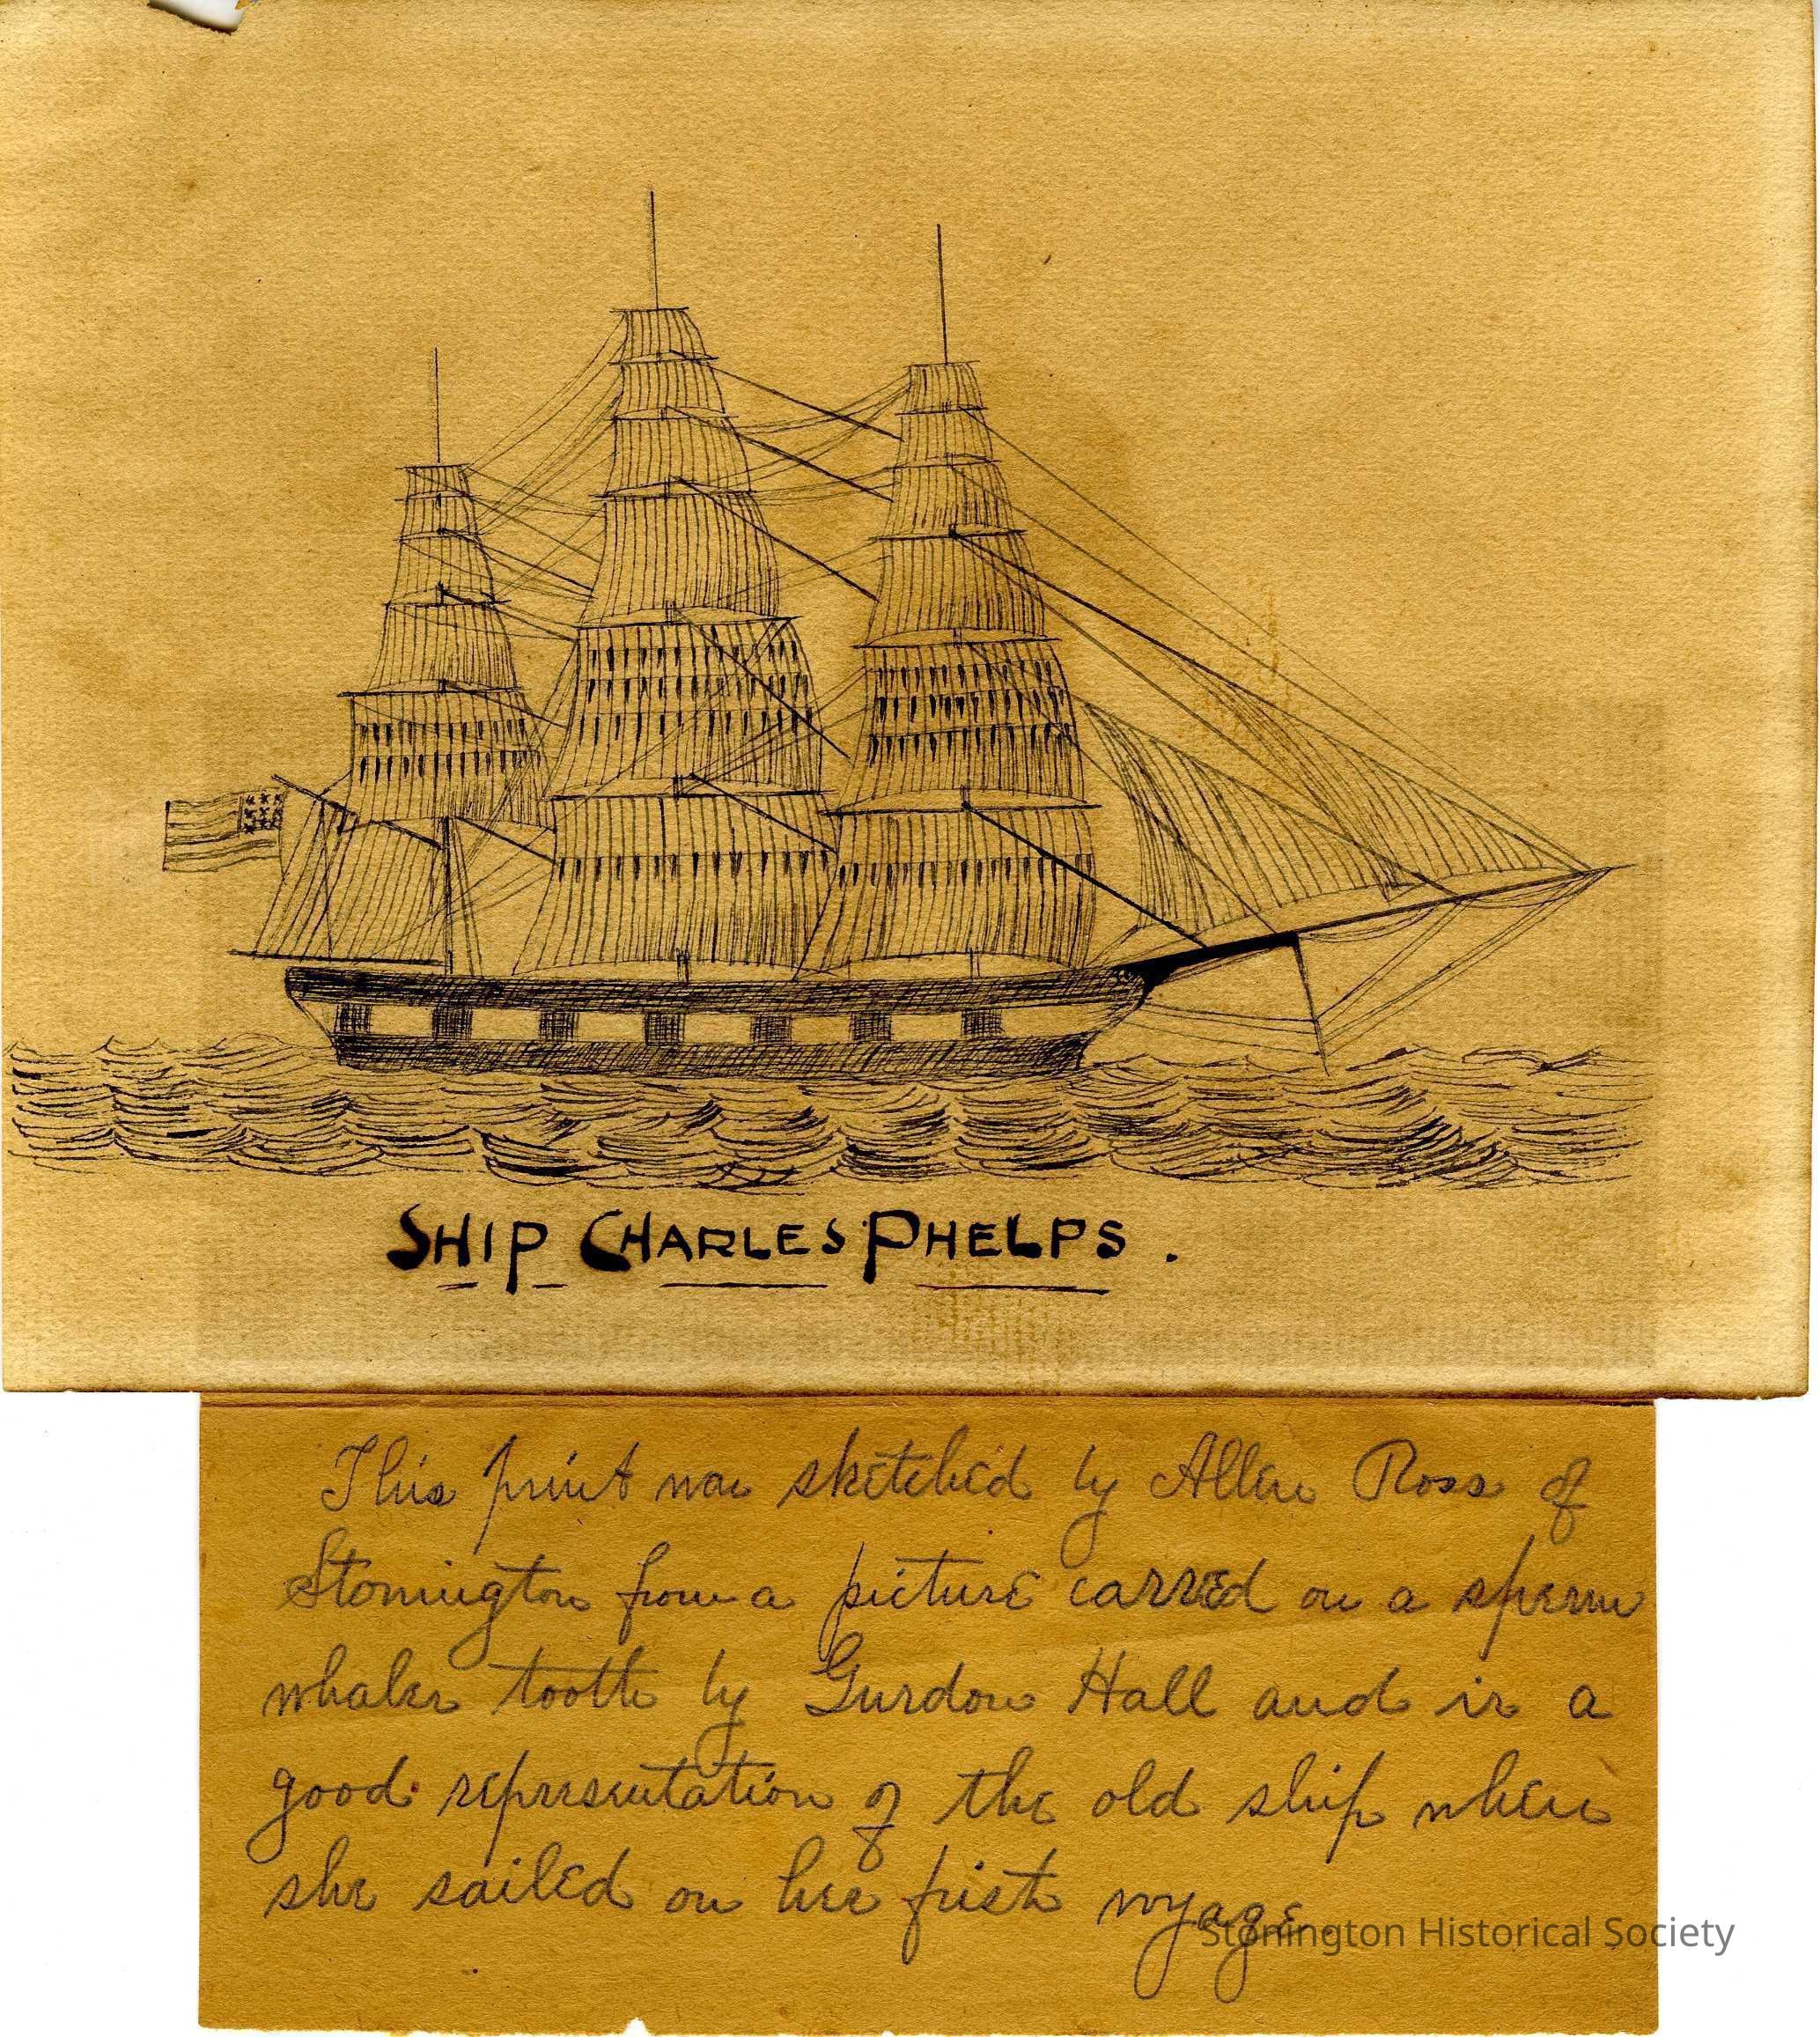 SHIP CHARLES PHELPS.
This print was sketched by Allen Ross of
Stonington from a picture carved on a sperm
whales tooth by Gurdon Hall and is a
good representation of the old ship when
she sailed on her first voyage.
Stonington Historical Society